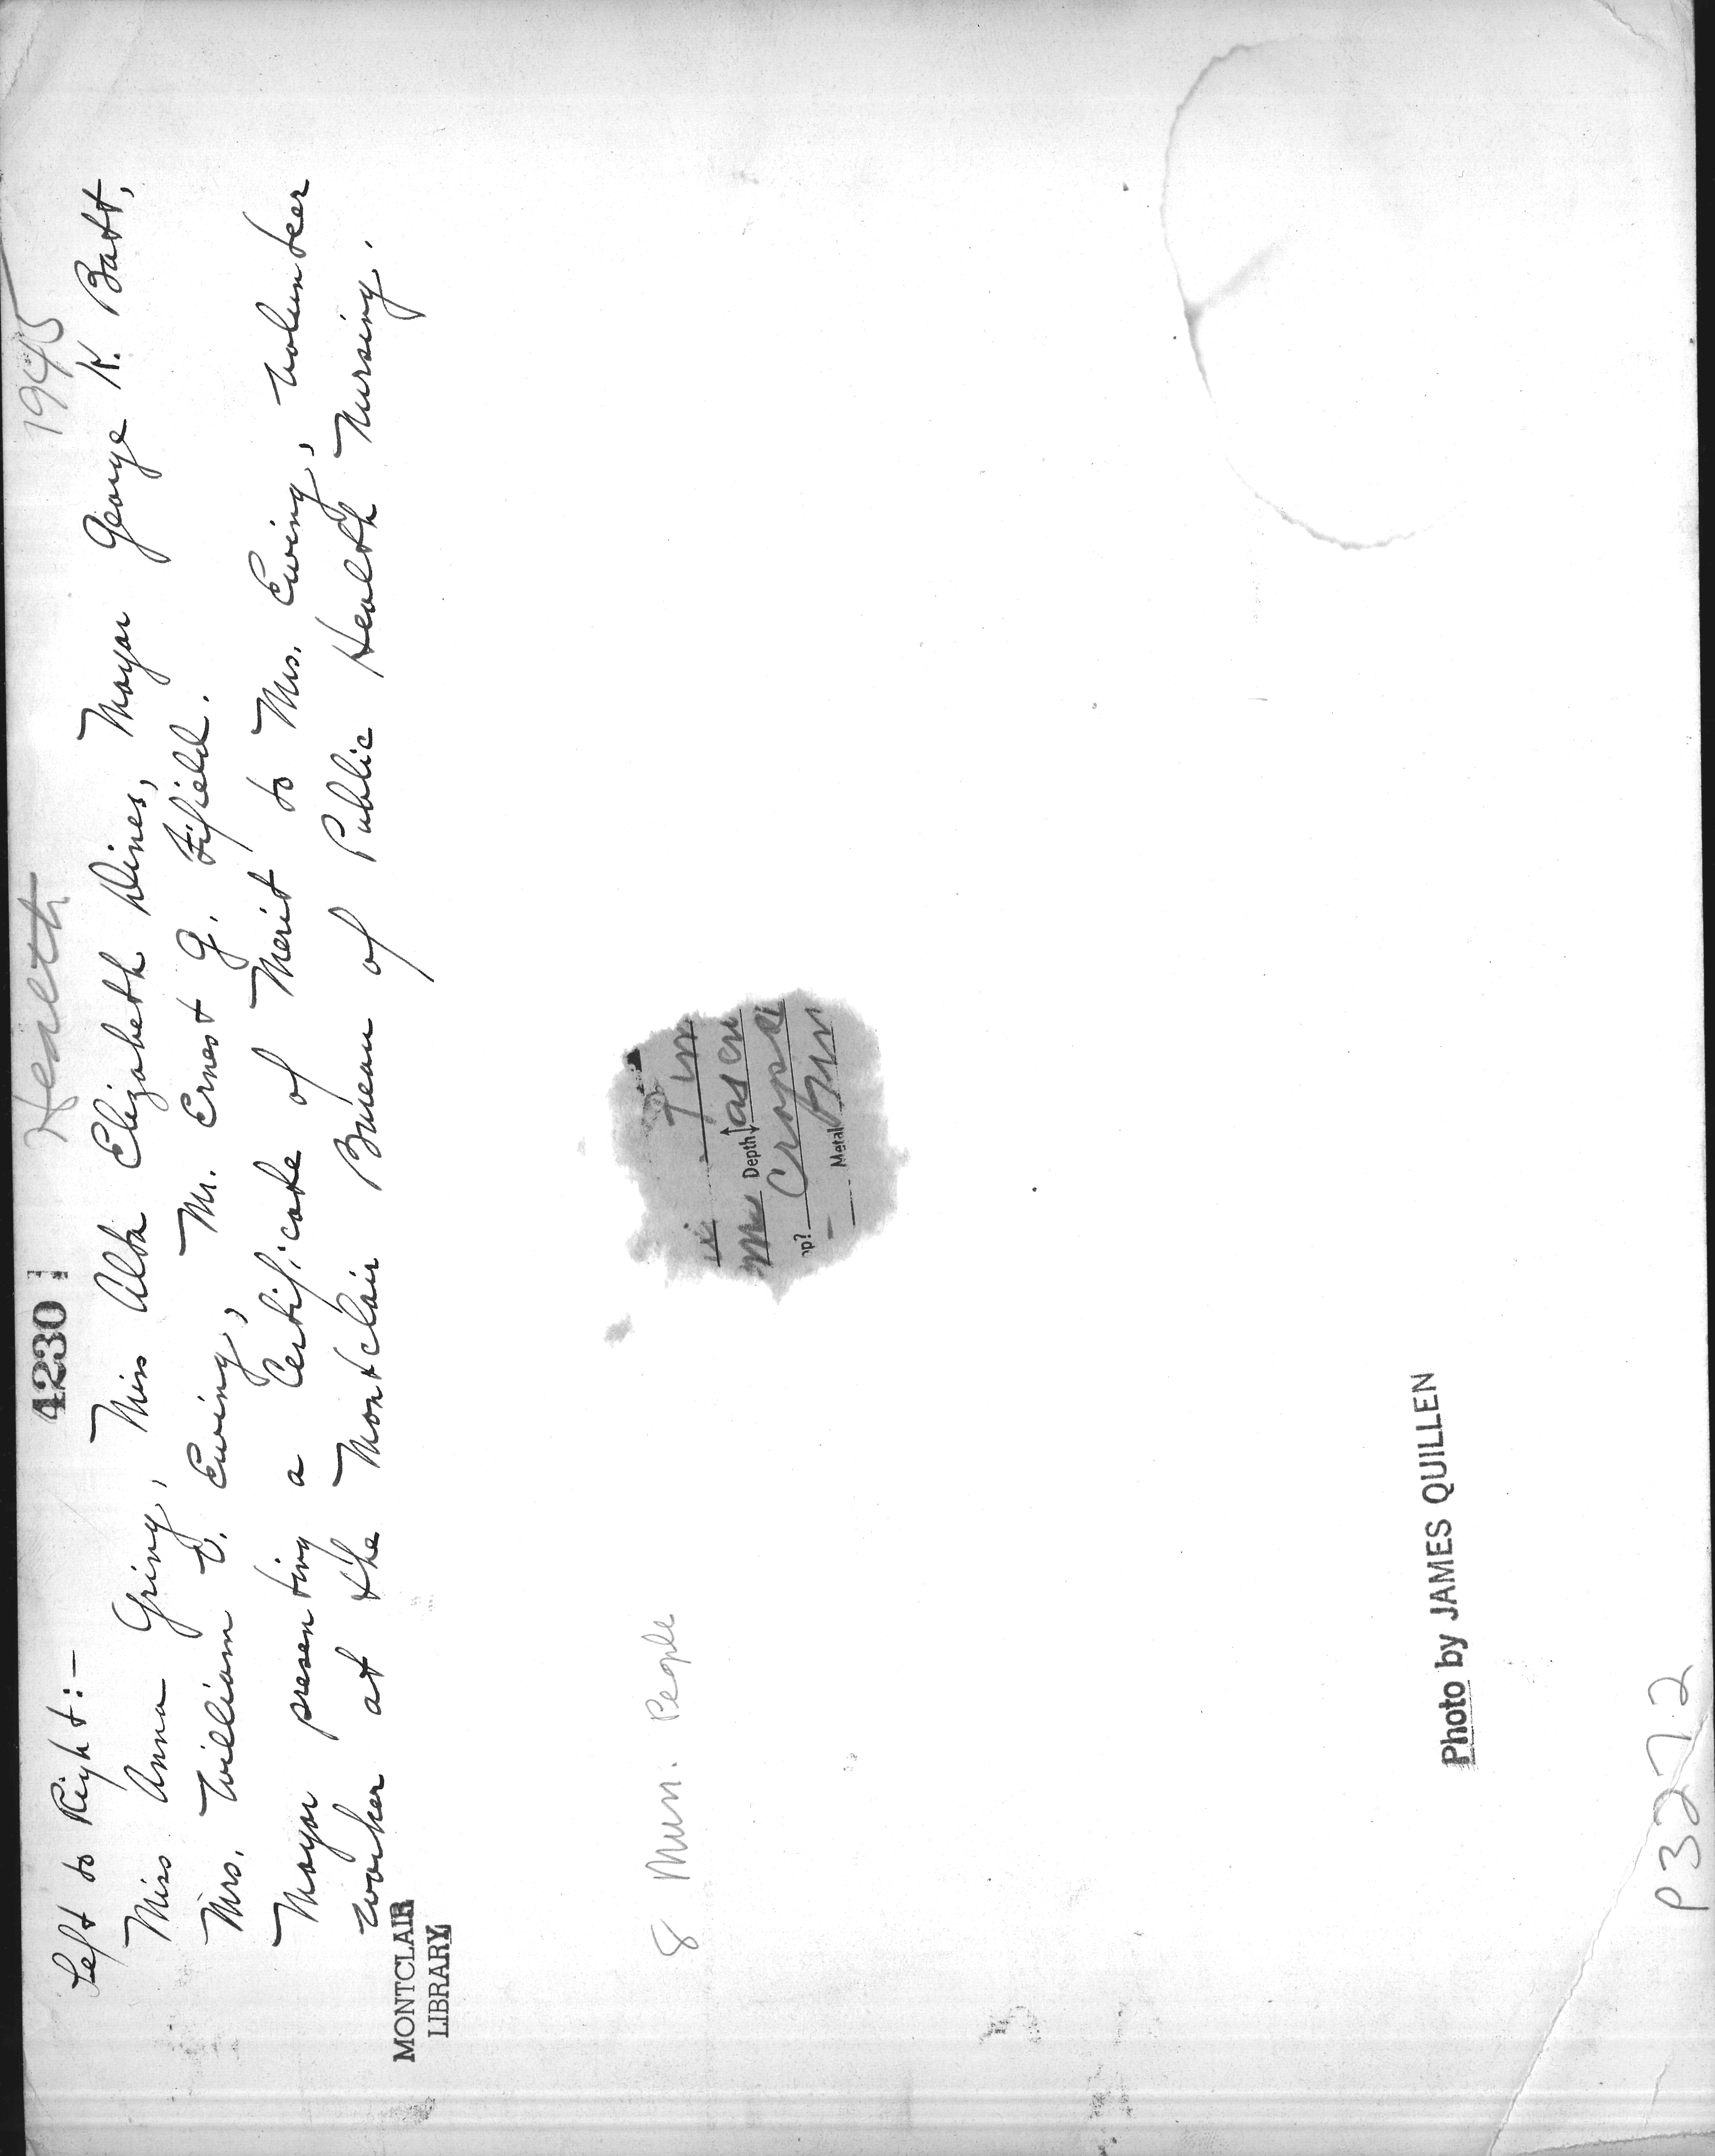 4230 Health 1945
Left to Right:-
Miss Anna Gring, Miss Alta Elizabeth Dines, Mayor George K. Batt,
Mrs. William D. Ewing, Mr. Ernest G. Fifield.
Mayor presenting a Certificate of Merit to Mrs. Ewing, volunteer
worker at the Montclair Bureau of Public Health Nursing.
MONTCLAIR
LIBRARY
8 Mun. People
Depth
op? Crop
Metal
Photo by JAMES QUILLEN
P3272